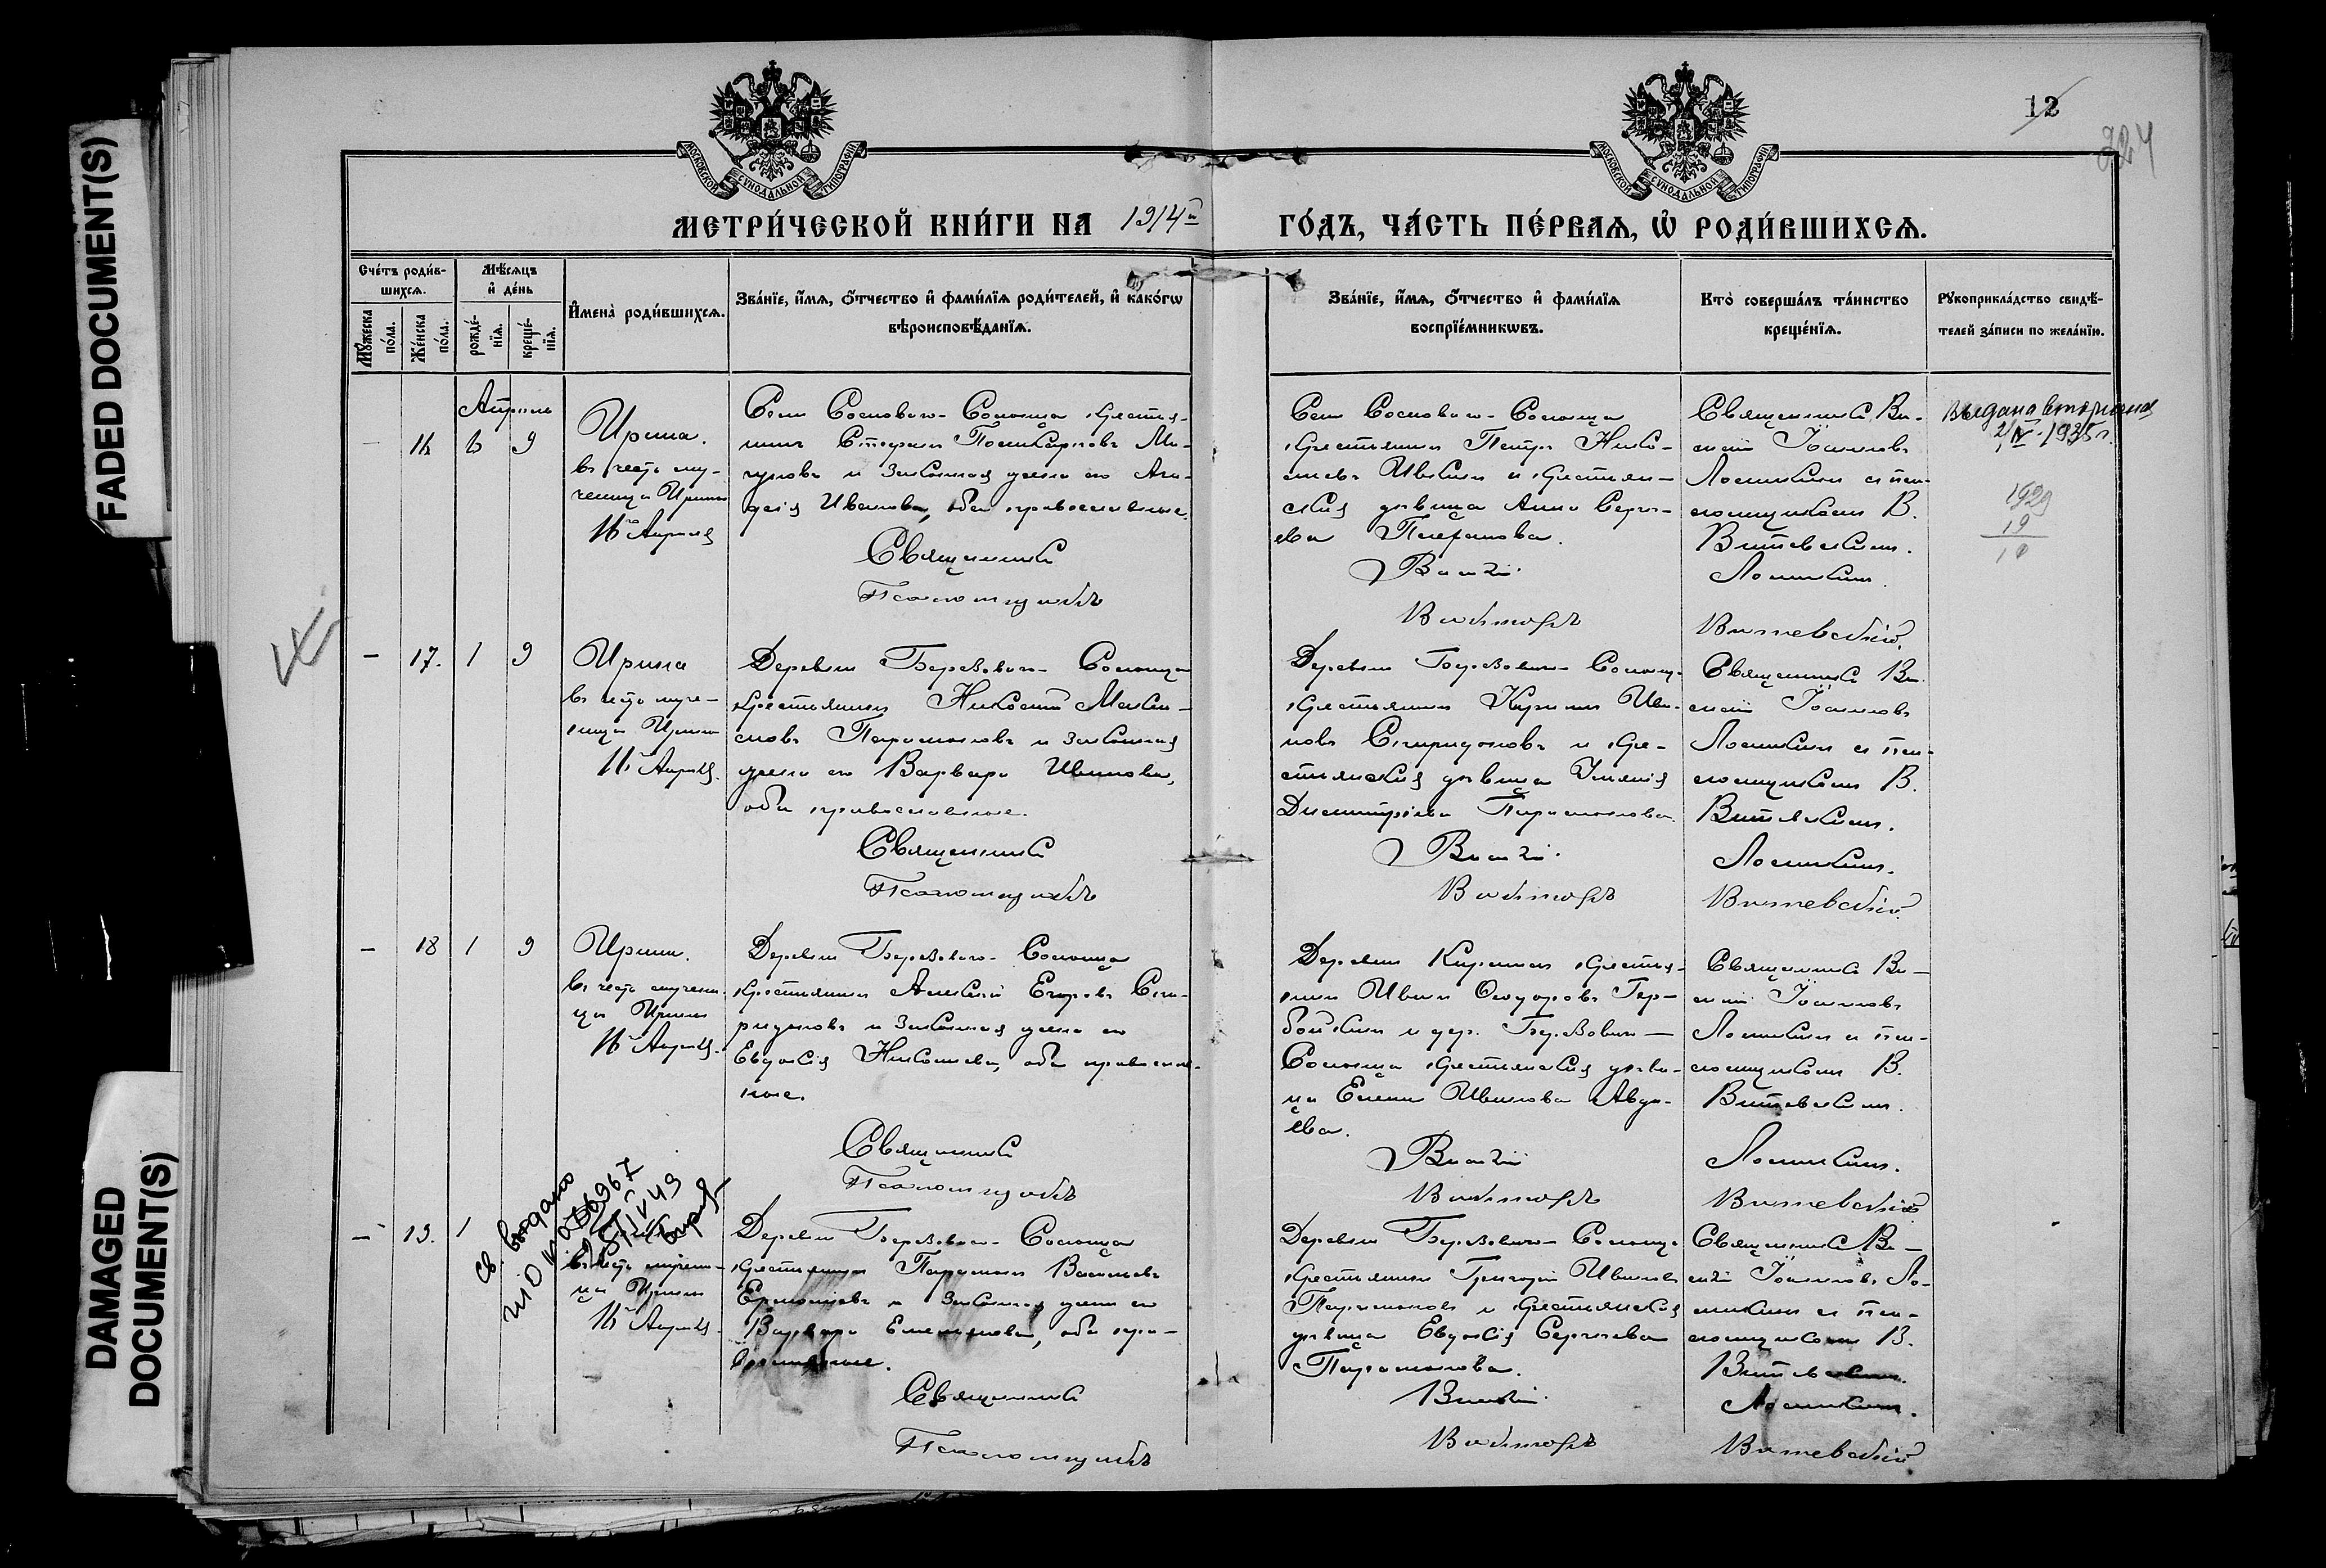 FADED DOCUMENT(S)
DAMAGED
DOCUMENT(S)
МОСКОВСКОЙ СѴНОДАЛЬНОЙ ТИПОГРАФІИ
МОСКОВСКОЙ СѴНОДАЛЬНОЙ ТИПОГРАФІИ
12
224
МЕТРИ́ЧЕСКОЙ КНИ́ГИ НА 1914й ГО́ДЪ, ЧА́СТЬ ПЕ́РВАѦ, Ѡ҆ РОДИ́ВШИХСѦ.
Сче́тъ роди́в-
шихсѧ.
Мꙋ́жеска
по́ла.
Же́нска
по́ла.
Мѣ́сѧцъ
и҆ де́нь
рожде́-
нїѧ.
креще́-
нїѧ.
И҆мена̀ роди́вшихсѧ.
Зва́нїе, и҆́мѧ, ѻ҆́тчество и҆ фами́лїѧ роди́телей, и҆ како́гѡ
вѣроисповѣ́данїѧ.
Зва́нїе, и҆́мѧ, ѻ҆́тчество и҆ фами́лїѧ
воспрїе́мникѡвъ.
Кто̀ соверша́лъ та́инство
креще́нїѧ.
Рꙋкоприкла́дство свидѣ́-
телей за́писи по жела́нїю.
Апрѣль
16 6 9
Ирина.
въ честь му-
ченицы Ирины
16го Апрѣля
Села Сосноваго-Солонца крестья-
нинъ Стефанъ Поликарповъ Ми-
и законная жена его Ага-
Иванова, оба православные.
Священникъ
Псаломщикъ
Села Сосноваго-Солонца
крестьянинъ Петръ Нико-
лаевъ и крестьян-
ская дѣвица Анна Серге-
ева
Виталій
Викторъ
Священникъ Ви-
талій Іоанновъ
съ пса-
ломщикомъ В.
Витевскимъ.
Витевскій.
Выдана вторичная
2/IV-1935 г.
1929
19
10
— 17. 1 9
Ирина
въ честь муче-
ницы Ирины
16 Апрѣля.
Деревни Березоваго-Солонца
крестьянинъ Николай Макси-
мовъ Парамоновъ и законная
жена его Варвара Иванова,
оба православные.
Священникъ
Псаломщикъ
Деревни Березоваго-Солонца
крестьянинъ Кириллъ Ива-
новъ Спиридоновъ и кре-
стьянская дѣвица
Димитріева Парамонова.
Виталій
Викторъ
Священникъ Ви-
талій Іоанновъ
съ пса-
ломщикомъ В.
Витевскимъ.
Витевскій.
— 18 1 9
Ирина.
въ честь мучени-
цы Ирины
16 Апрѣля.
Деревни Березоваго-Солонца
крестьянинъ Алексѣй Егоровъ Спи-
ридоновъ и законная жена его
Евдокія Николаева, оба православ-
ные.
Священникъ
Псаломщикъ
Деревни крестья-
нинъ Иванъ Ѳеодоровъ Гер-
и дер. Березоваго-
Солонца крестьянская дѣви-
ца Елена Иванова Авде-
ева.
Виталій
Викторъ
Священникъ Ви-
талій Іоанновъ
съ пса-
ломщикомъ В.
Витевскимъ.
Витевскій
св. выдано
— 19. 1
въ честь мучени-
цы Ирины
16 Апрѣля.
Деревни Березоваго-Солонца
крестьянинъ Парамонъ Васильевъ
Ермолаевъ и законная жена его
Варвара Емельянова, оба пра-
вославные.
Священникъ
Псаломщикъ
Деревни Березоваго-Солонца
крестьянинъ Григорій Ивановъ
Парамоновъ и крестьянская
дѣвица Евдокія Сергѣева
Парамонова.
Виталій
Викторъ
Священникъ Ви-
талій Іоанновъ
съ пса-
ломщикомъ В.
Витевскимъ.
Витевскій